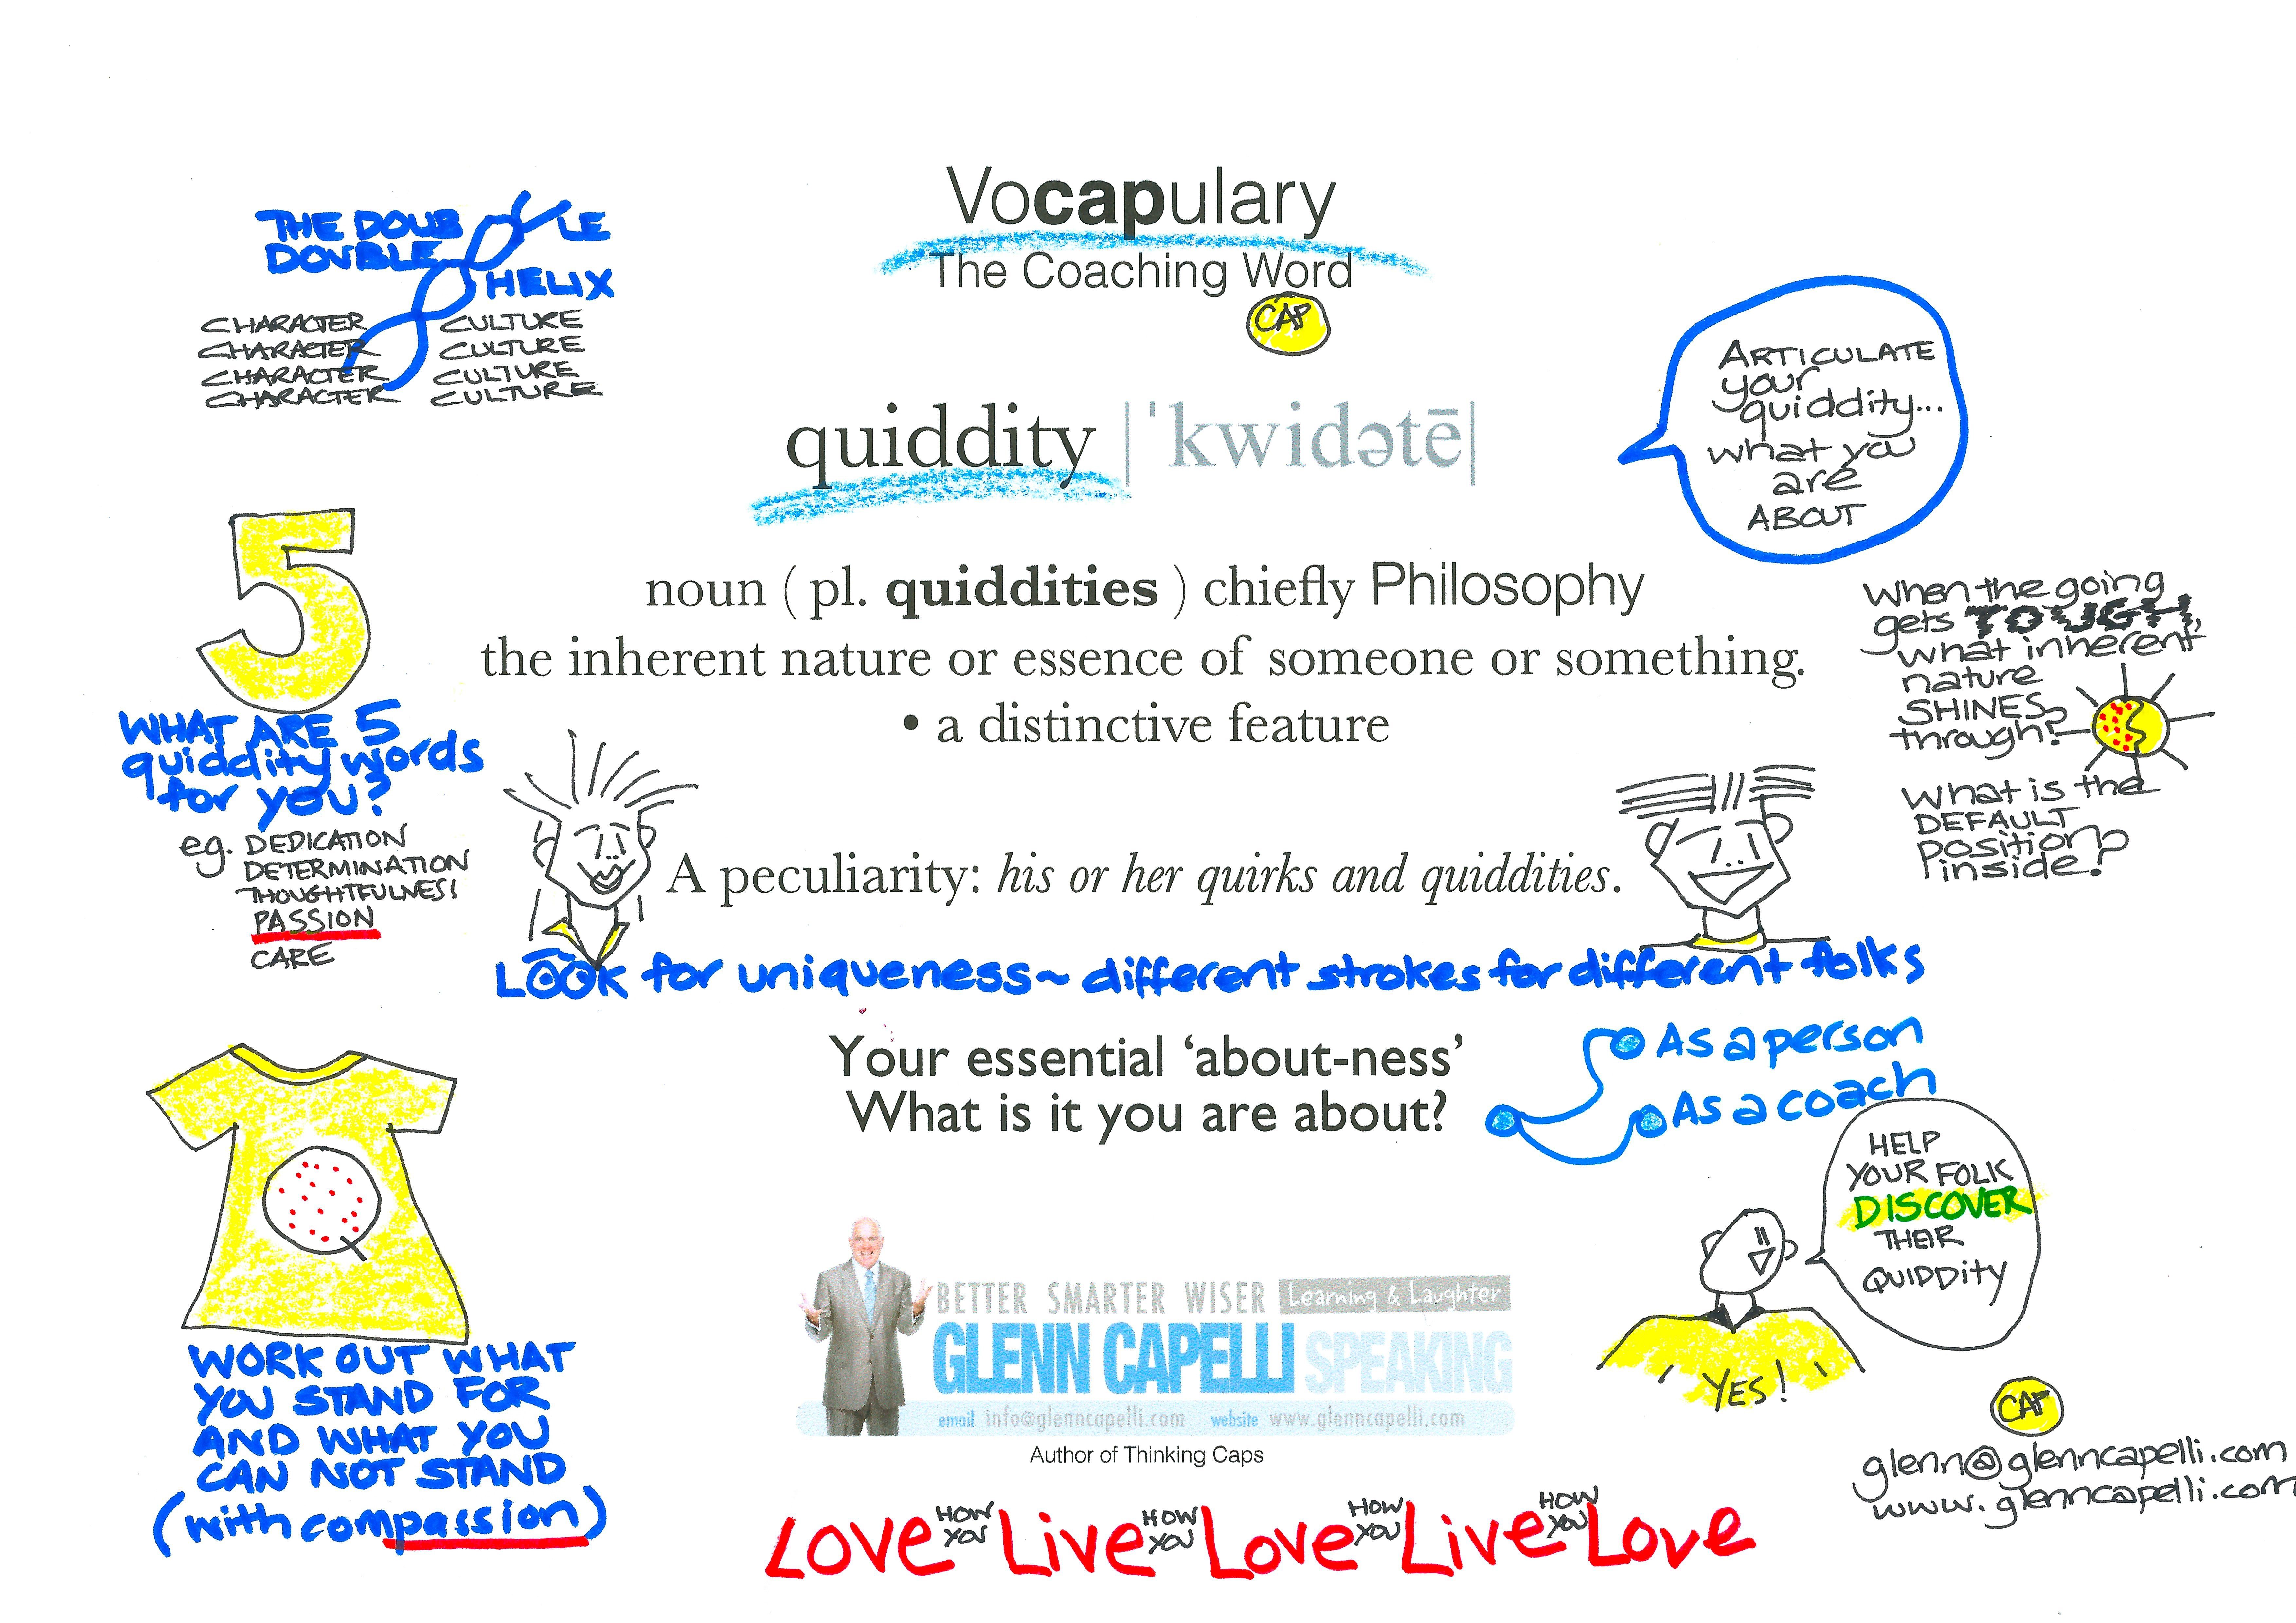 Vocapulary
The Coaching Word
CAP
THE DOUBLE
DOUBLE
HELIX
CHARACTER CULTURE
CHARACTER CULTURE
CHARACTER CULTURE
CHARACTER CULTURE
quiddity |ˈkwidətē|
ARTICULATE
your
quiddity...
what you
are
ABOUT
noun ( pl. quiddities ) chiefly Philosophy
the inherent nature or essence of someone or something.
• a distinctive feature
5
WHAT ARE 5
quiddity words
for you?
eg. DEDICATION
DETERMINATION
THOUGHTFULNESS
PASSION
CARE
When the going
gets TOUGH,
what inherent
nature
SHINES
through?
What is the
DEFAULT
position
inside?
A peculiarity: his or her quirks and quiddities.
LOOK for uniqueness~ different strokes for different folks
Your essential ‘about-ness’
What is it you are about?
As a person
As a coach
HELP
YOUR FOLK
DISCOVER
THEIR
QUIDDITY
YES!
WORK OUT WHAT
YOU STAND FOR
AND WHAT YOU
CAN NOT STAND
(with compassion)
BETTER SMARTER WISER Learning & Laughter
GLENN CAPELLI SPEAKING
email info@glenncapelli.com website www.glenncapelli.com
Author of Thinking Caps
CAP
glenn@glenncapelli.com
www.glenncapelli.com
Love HOW YOU Live HOW YOU Love HOW YOU Live HOW YOU Love